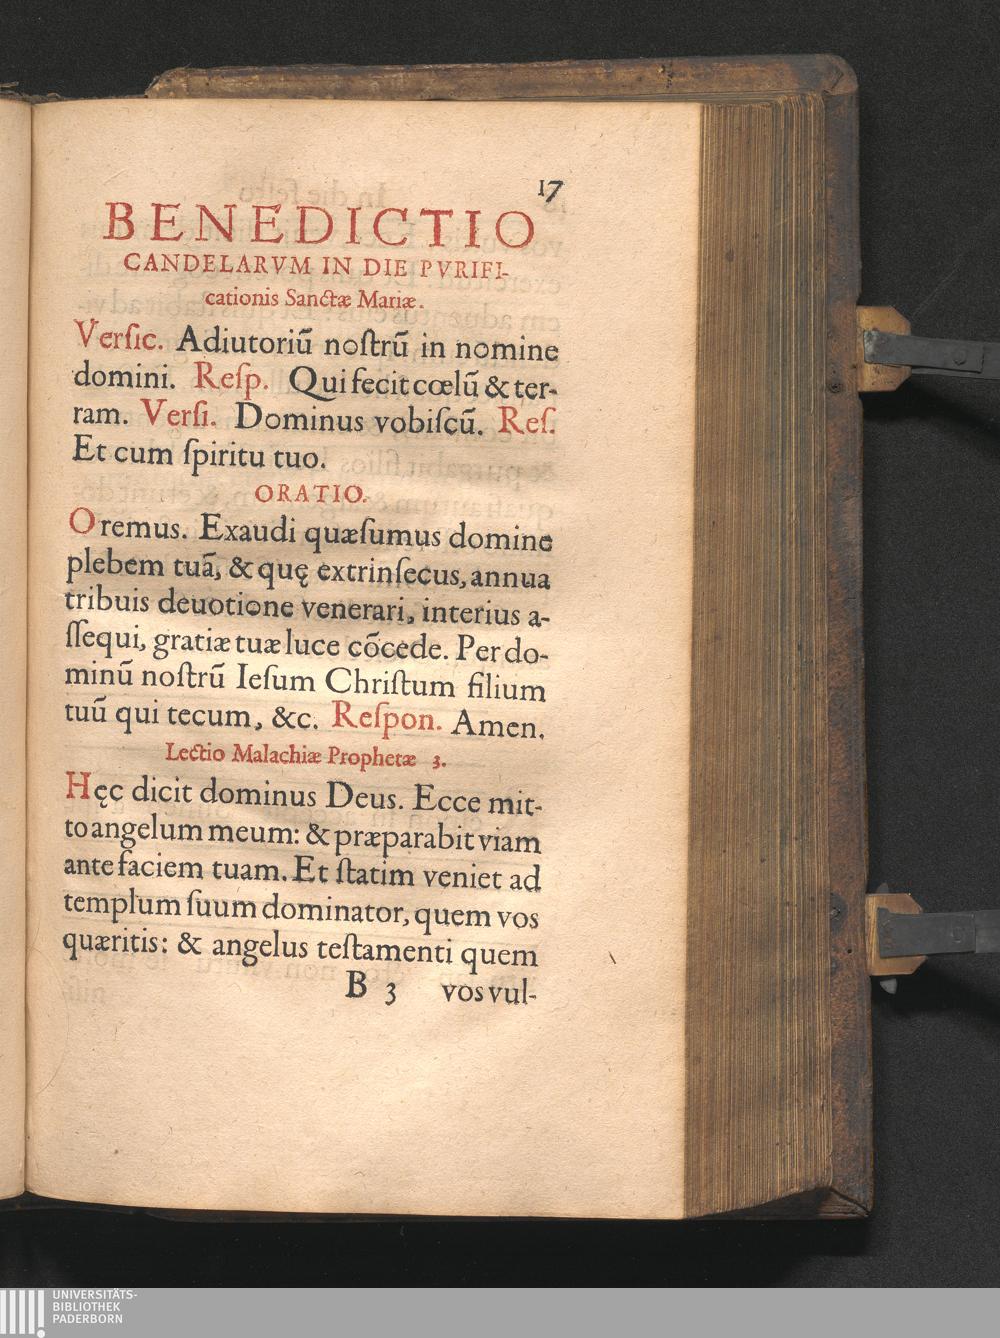 17
BENEDICTIO
CANDELARVM IN DIE PVRIFI-
cationis Sanctæ Mariæ.
Verſic. Adiutoriū noſtrū in nomine
domini. Reſp. Qui fecit cœlū & ter-
ram. Verſi. Dominus vobiſcū. Reſ.
Et cum ſpiritu tuo.
ORATIO.
Oremus. Exaudi quæſumus domine
plebem tuā, & quę extrinſecus, annua
tribuis deuotione venerari, interius a-
ſſequi, gratiæ tuæ luce cōcede. Per do-
minū noſtrū Ieſum Chriſtum filium
tuū qui tecum, &c. Reſpon. Amen.
Lectio Malachiæ Prophetæ 3.
Hęc dicit dominus Deus. Ecce mit-
to angelum meum: & præparabit viam
ante faciem tuam. Et ſtatim veniet ad
templum ſuum dominator, quem vos
quæritis: & angelus teſtamenti quem
B 3 vos vul-
UNIVERSITÄTS-
BIBLIOTHEK
PADERBORN